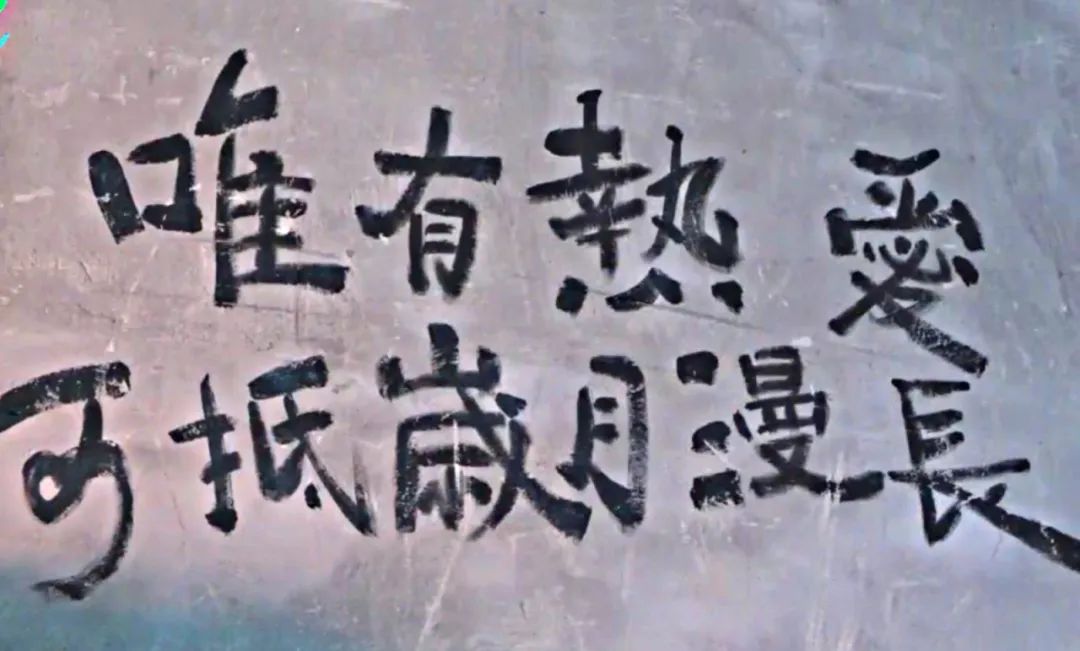 唯有熱愛
可抵歲月漫長